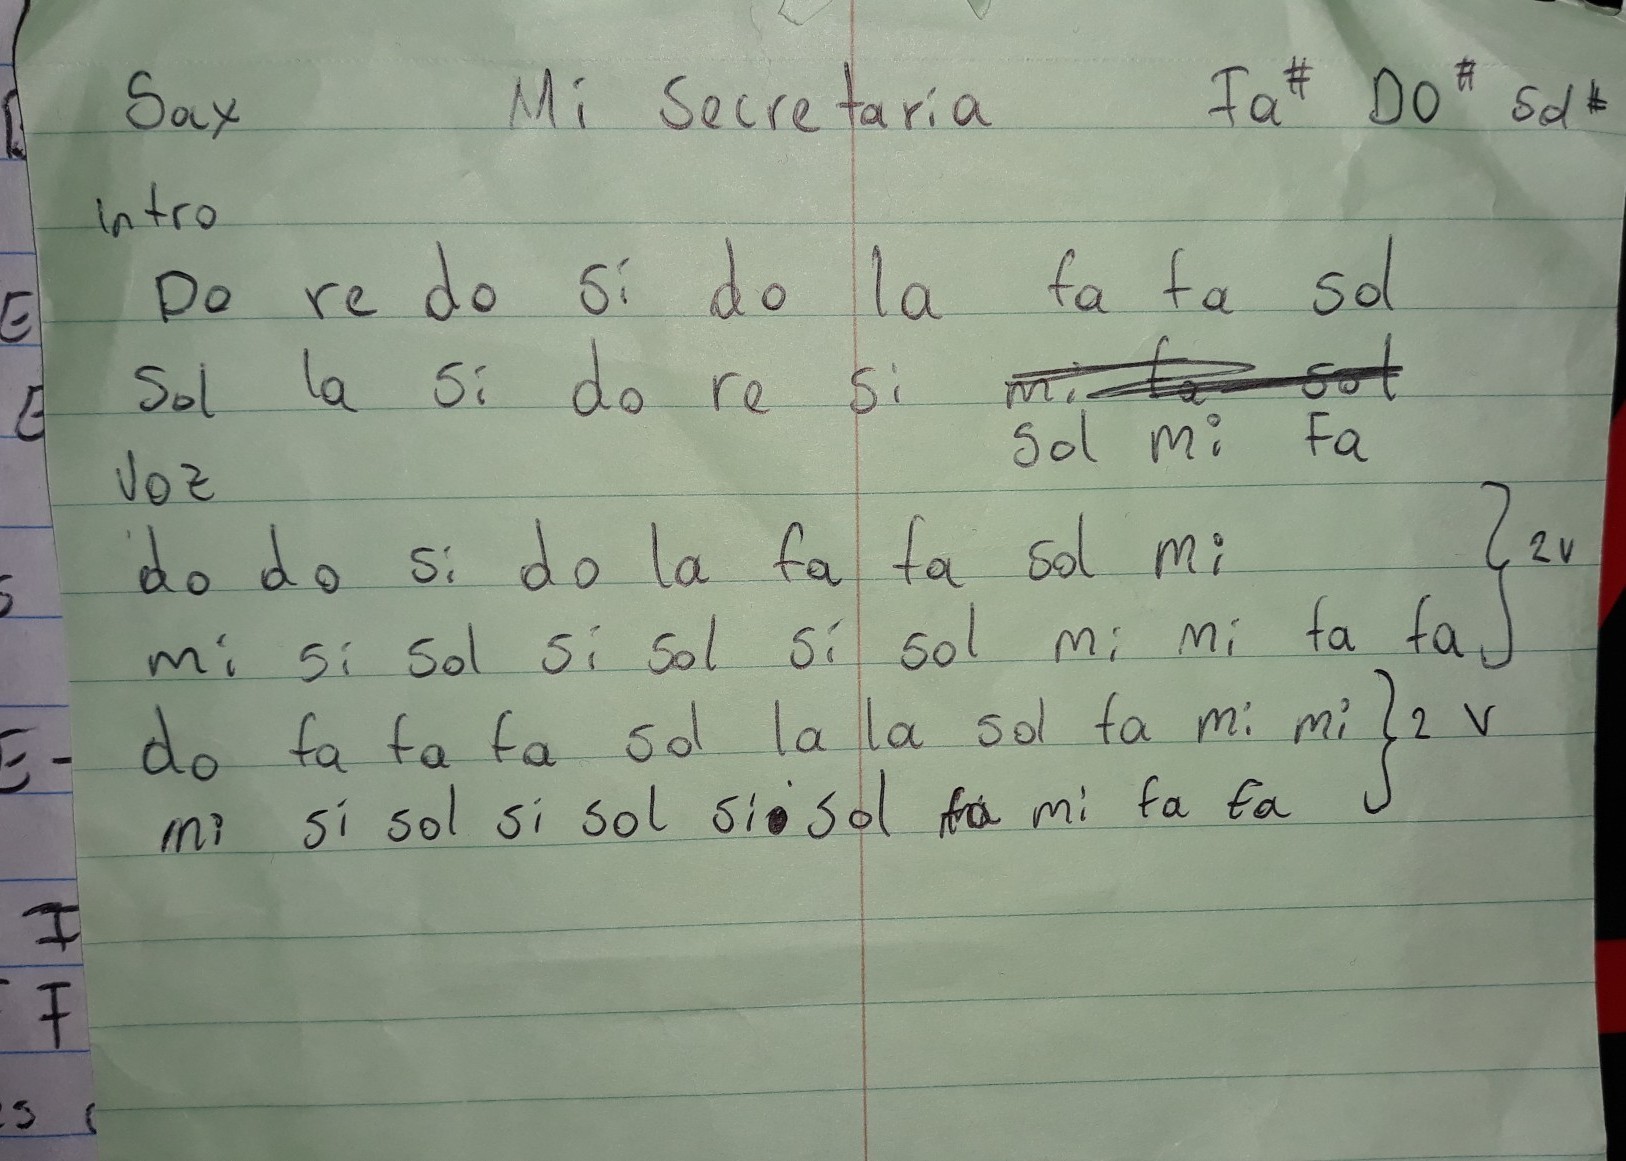 Sax Mi Secretaria Fa# DO# Sol#
intro
Do re do si do la fa fa sol
Sol la si do re si mi fa sol
sol mi Fa
Voz
do do si do la fa fa sol mi
mi si sol si sol si sol mi mi fa fa } 2v
do fa fa fa sol la la sol fa mi mi } 2 v
mi si sol si sol si sol mi fa fa